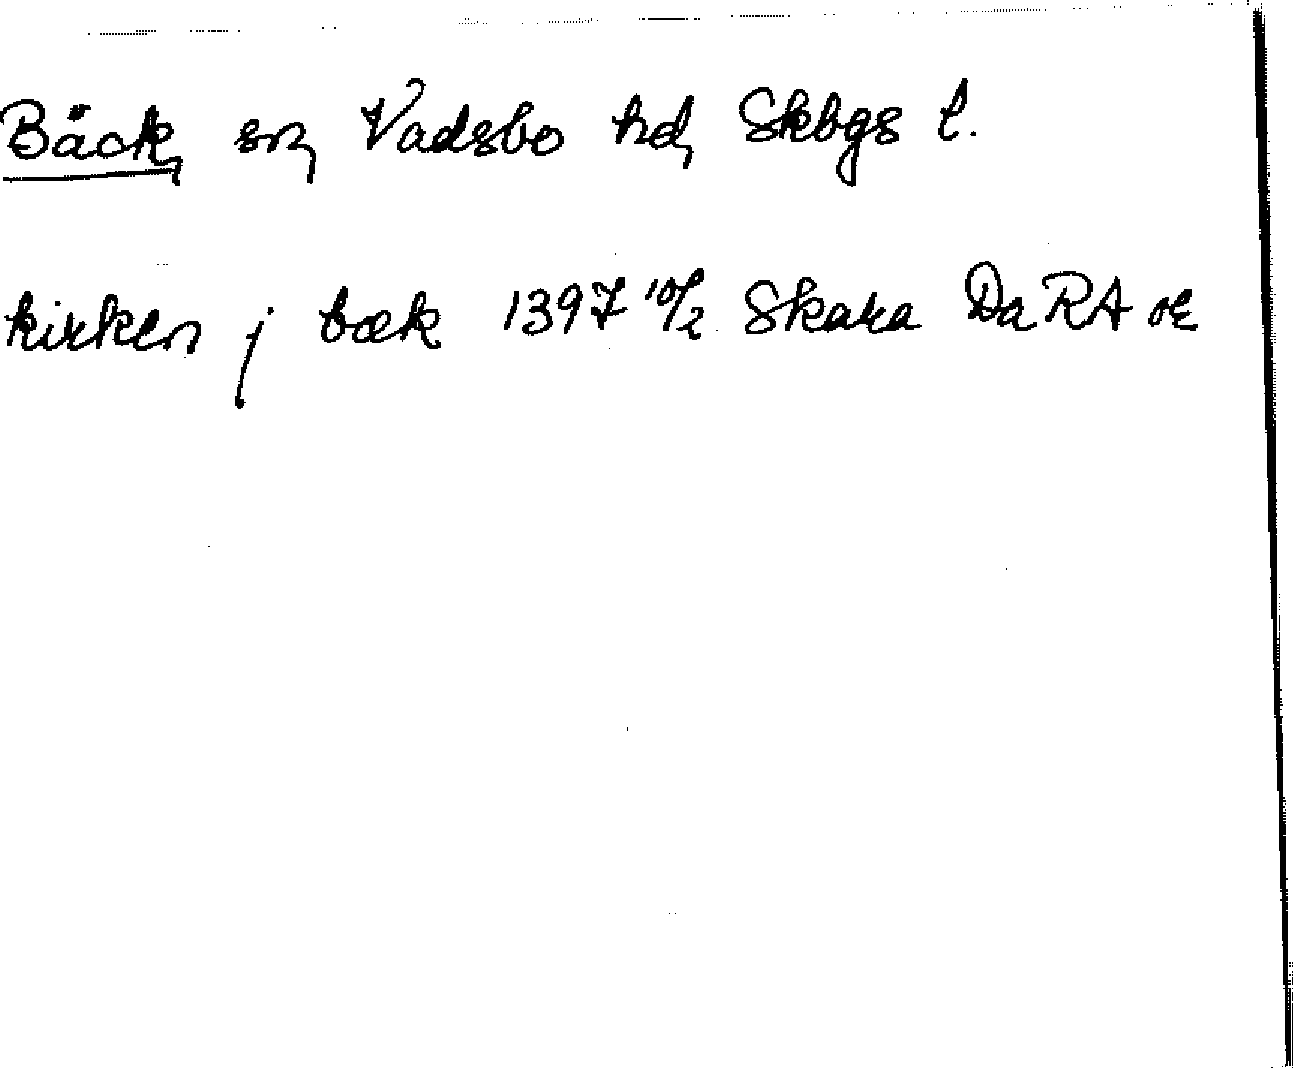 Bäck, sn, Vadsbo hd, Skbgs l.
kirken j bæk 1397 10/2 Skara DaRA or